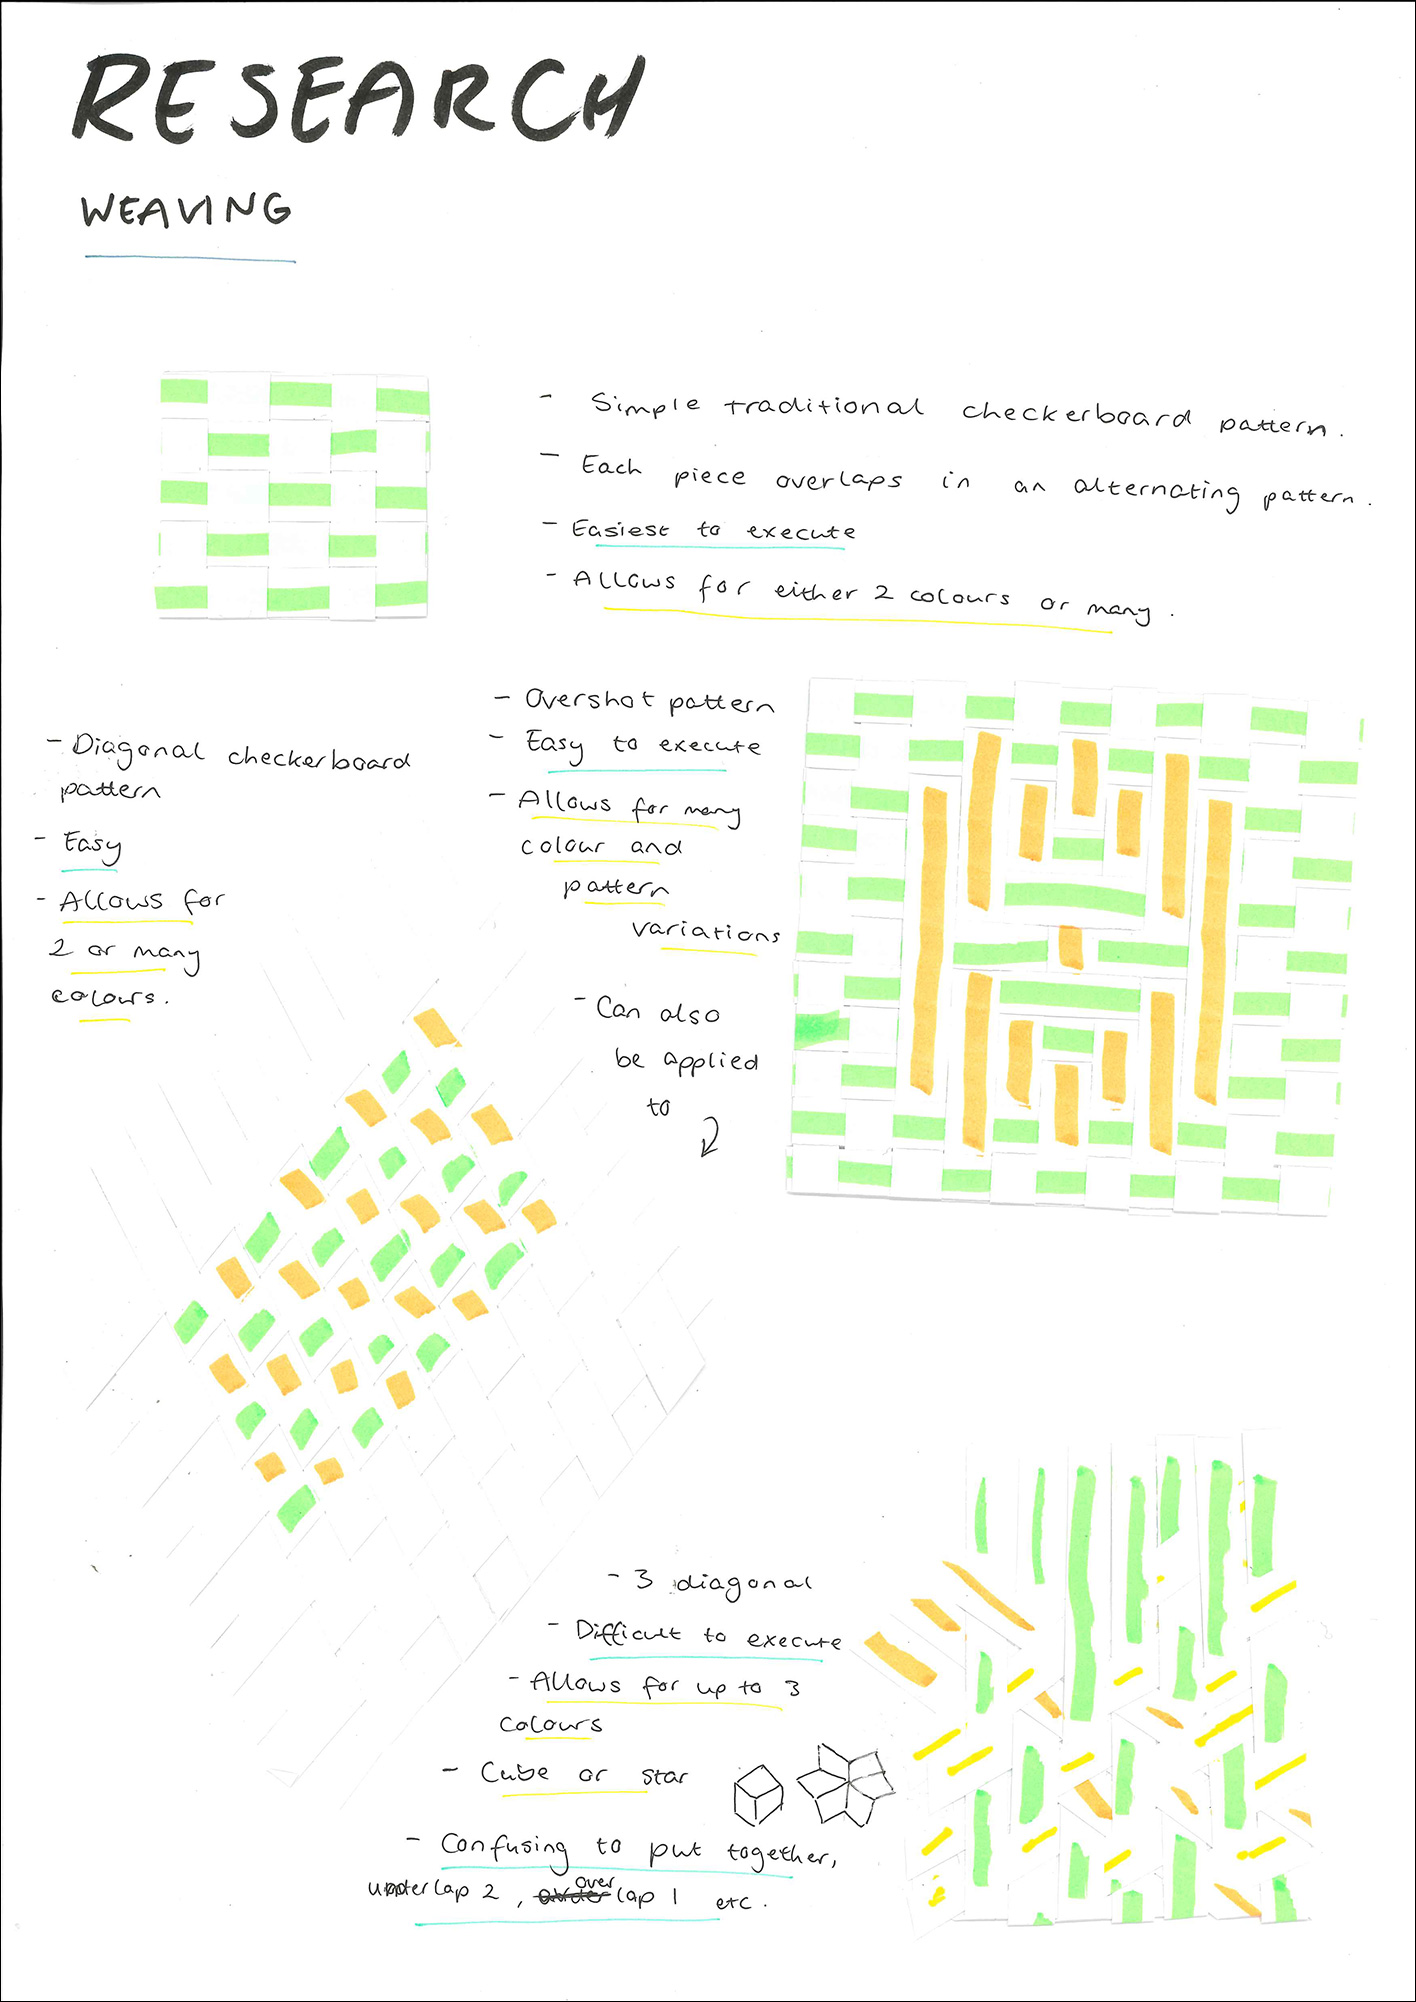 RESEARCH
WEAVING
- Simple traditional checkerboard pattern.
- Each piece overlaps in an alternating pattern.
- Easiest to execute
- Allows for either 2 colours or many.
- Diagonal checkerboard
pattern
- Easy
- Allows for
2 or many
colours.
- Overshot pattern
- Easy to execute
- Allows for many
colour and
pattern
variations
- Can also
be applied
to
- 3 diagonal
- Difficult to execute
- Allows for up to 3
colours
- Cube or star
- Confusing to put together,
underlap 2, over lap 1 etc.